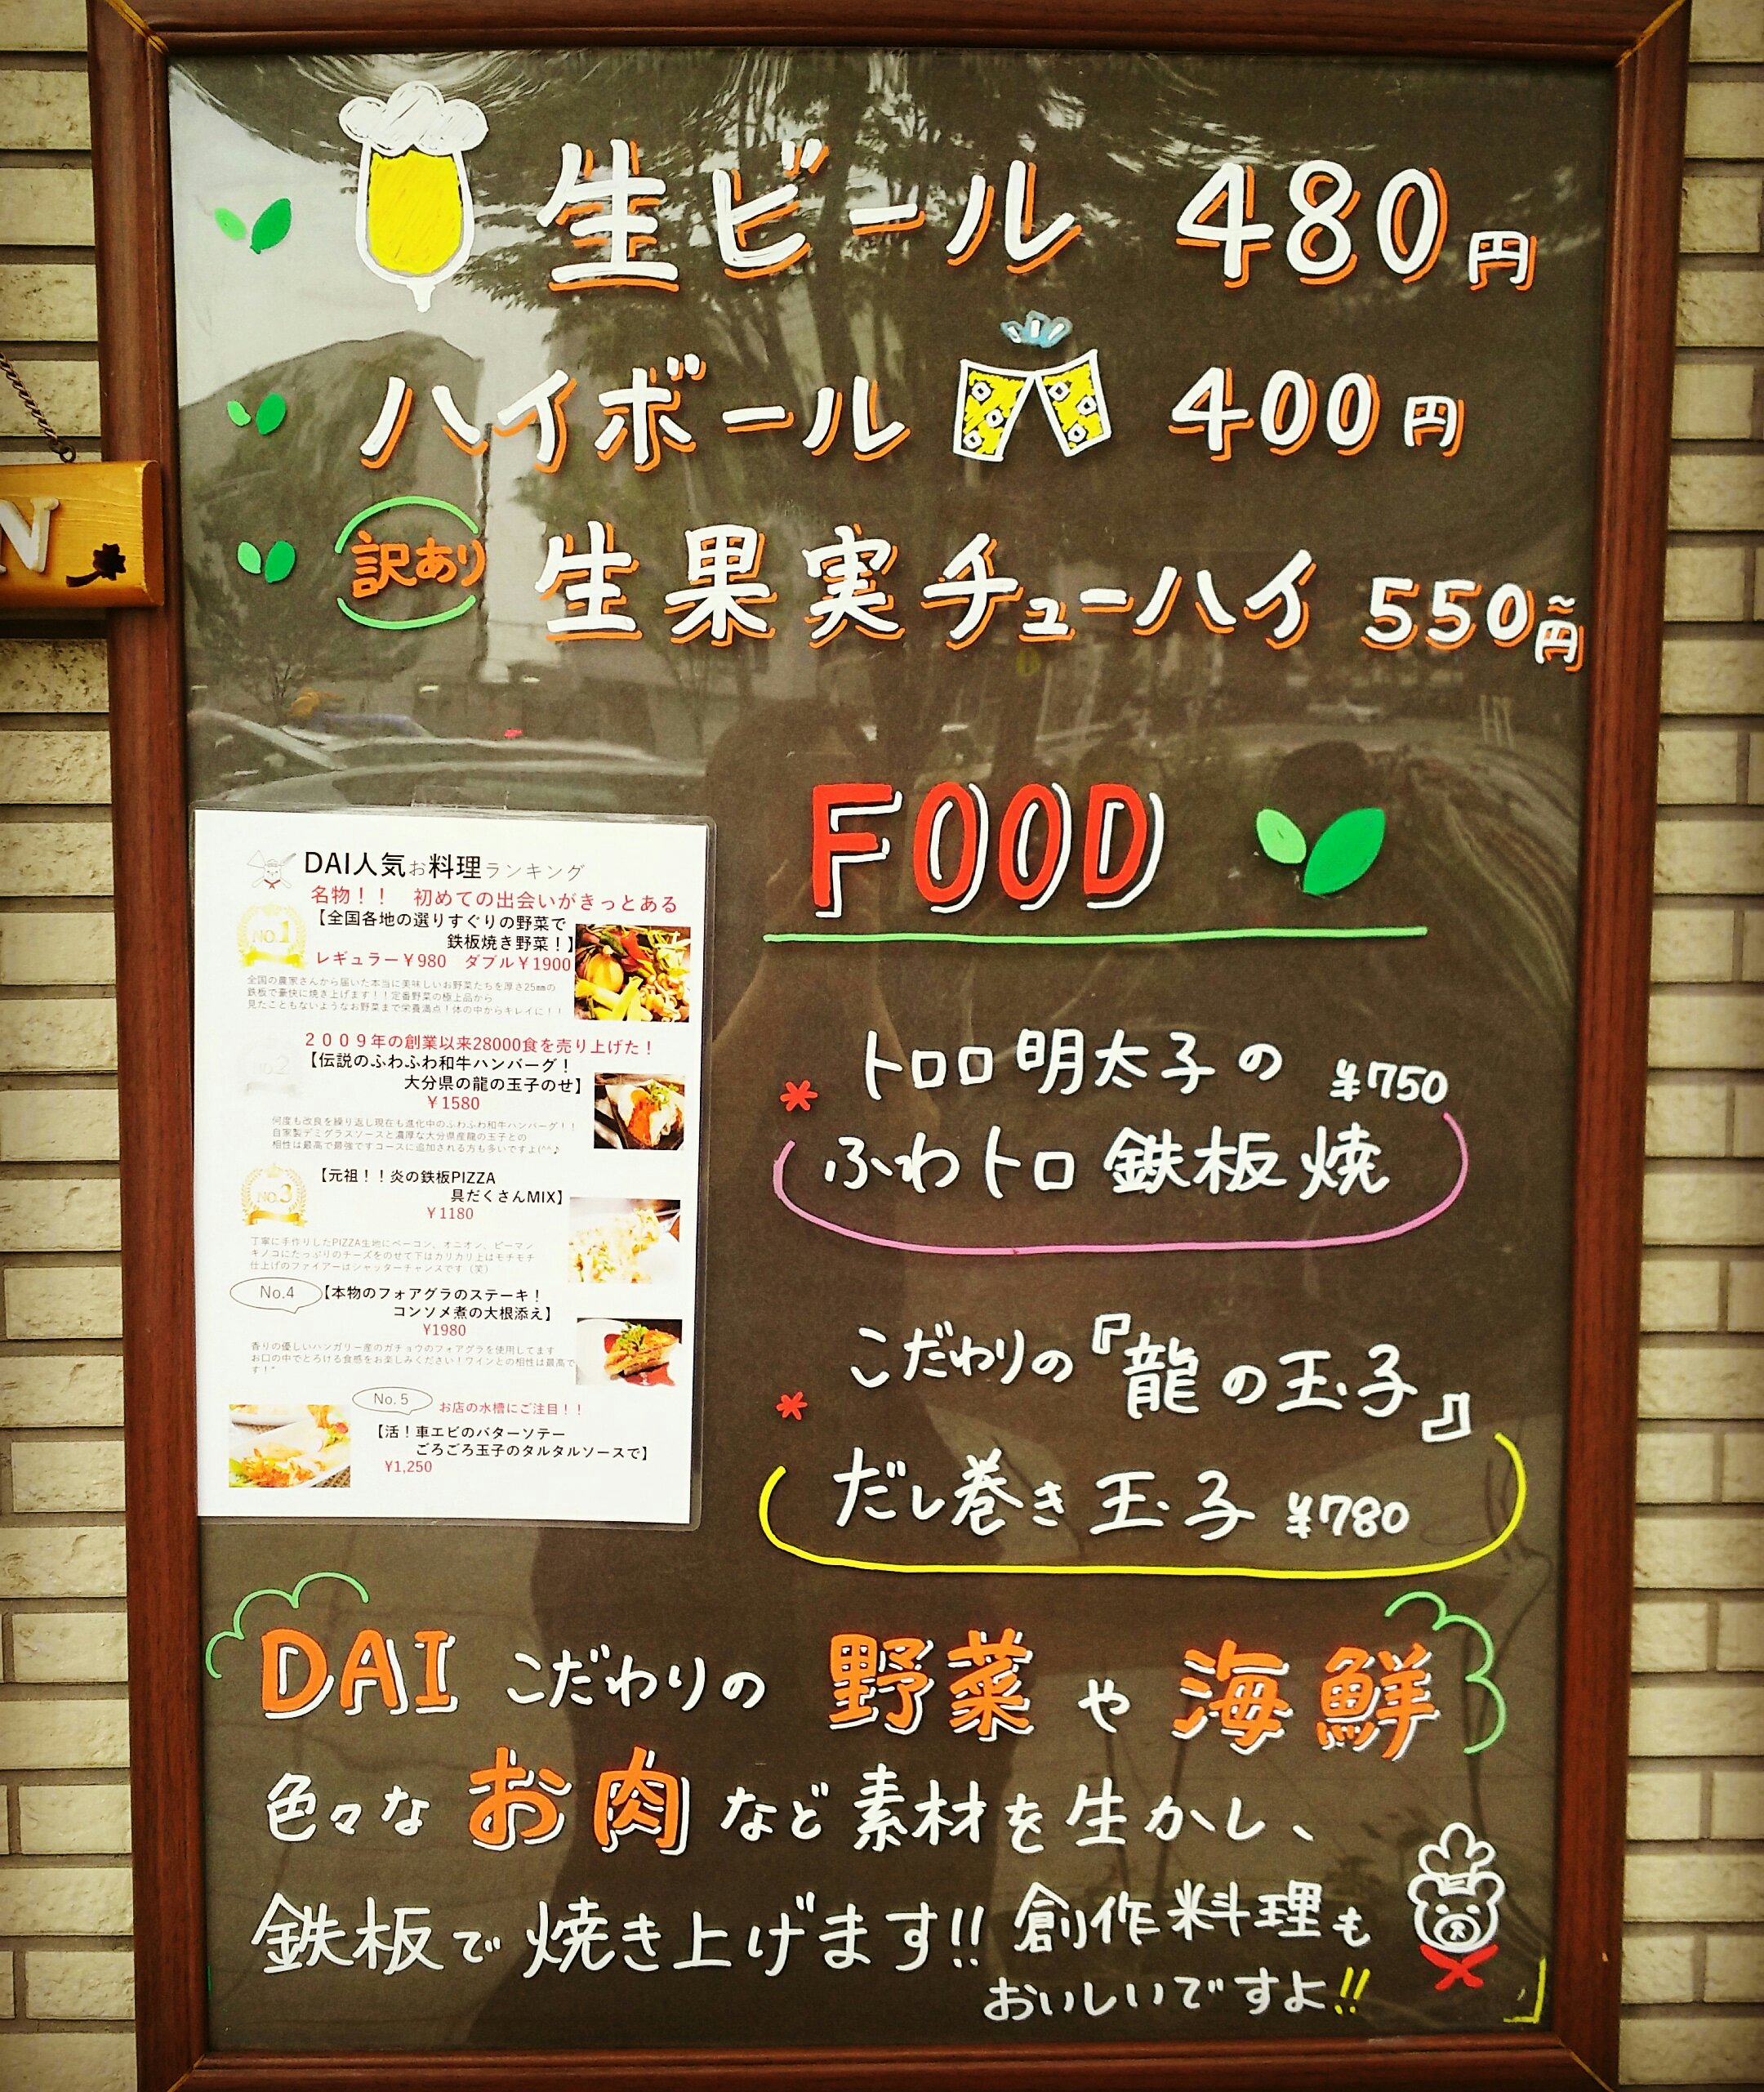 生ビール 480円
ハイボール 400円
訳あり 生果実チューハイ 550円~
N
FOOD
トロロ明太子の ¥750
ふわトロ鉄板焼
こだわりの『龍の玉子』
だし巻き玉子 ¥780
DAI人気お料理ランキング
名物！！ 初めての出会いがきっとある
NO.1
【全国各地の選りすぐりの野菜で
鉄板焼き野菜！】
レギュラー￥980 ダブル￥1900
全国の農家さんから届いた本当に美味しいお野菜たちを厚さ25㎜の
鉄板で豪快に焼き上げます！！定番野菜の極上品から
見たこともないようなお野菜まで栄養満点！体の中からキレイに！！
２００９年の創業以来28000食を売り上げた！
No.2
【伝説のふわふわ和牛ハンバーグ！
大分県の龍の玉子のせ】
￥1580
何度も改良を繰り返し現在も進化中のふわふわ和牛ハンバーグ！！
自家製デミグラスソースと濃厚な大分県産龍の玉子との
相性は最高で最強ですコースに追加される方も多いですよ(^^♪
NO.3
【元祖！！炎の鉄板PIZZA
具だくさんMIX】
￥1180
丁寧に手作りしたPIZZA生地にベーコン、オニオン、ピーマン
キノコにたっぷりのチーズをのせて下はカリカリ上はモチモチ
仕上げのファイアーはシャッターチャンスです（笑）
No.4
【本物のフォアグラのステーキ！
コンソメ煮の大根添え】
¥1980
香りの優しいハンガリー産のガチョウのフォアグラを使用してます
お口の中でとろける食感をお楽しみください！ワインとの相性は最高で
す！"
No.5
お店の水槽にご注目！！
【活！車エビのバターソテー
ごろごろ玉子のタルタルソースで】
¥1,250
DAI こだわりの 野菜 や 海鮮
色々な お肉 など素材を生かし、
鉄板で焼き上げます!! 創作料理も
おいしいですよ!!